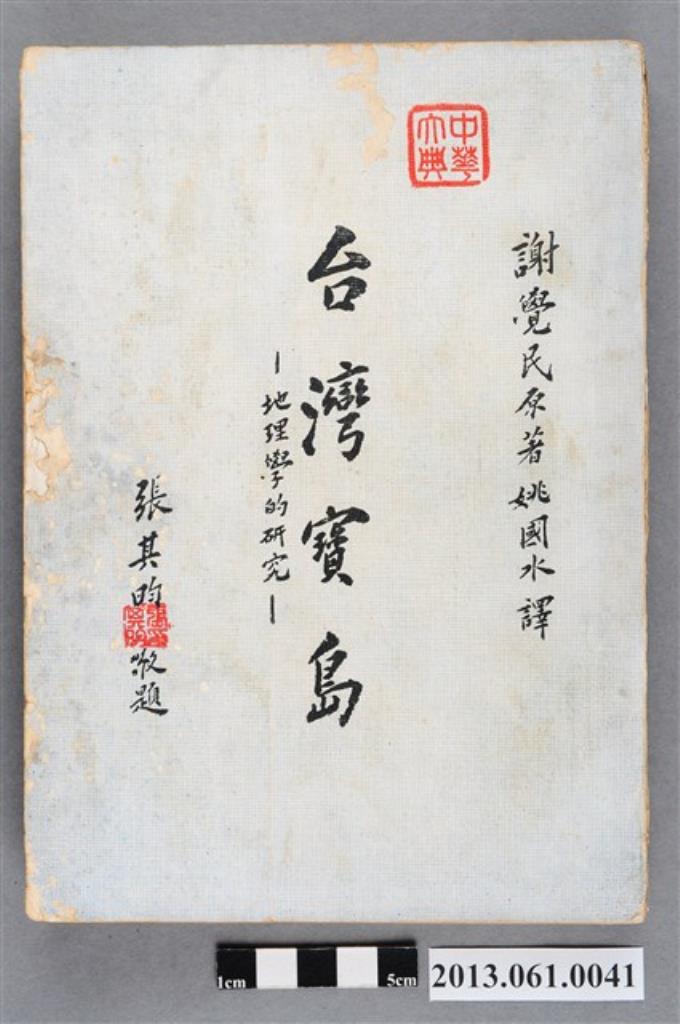 中華大典
謝覺民原著姚國水譯
台灣寶島
—地理學的研究—
張其昀敬題
張其昀
1cm
5cm
2013.061.0041